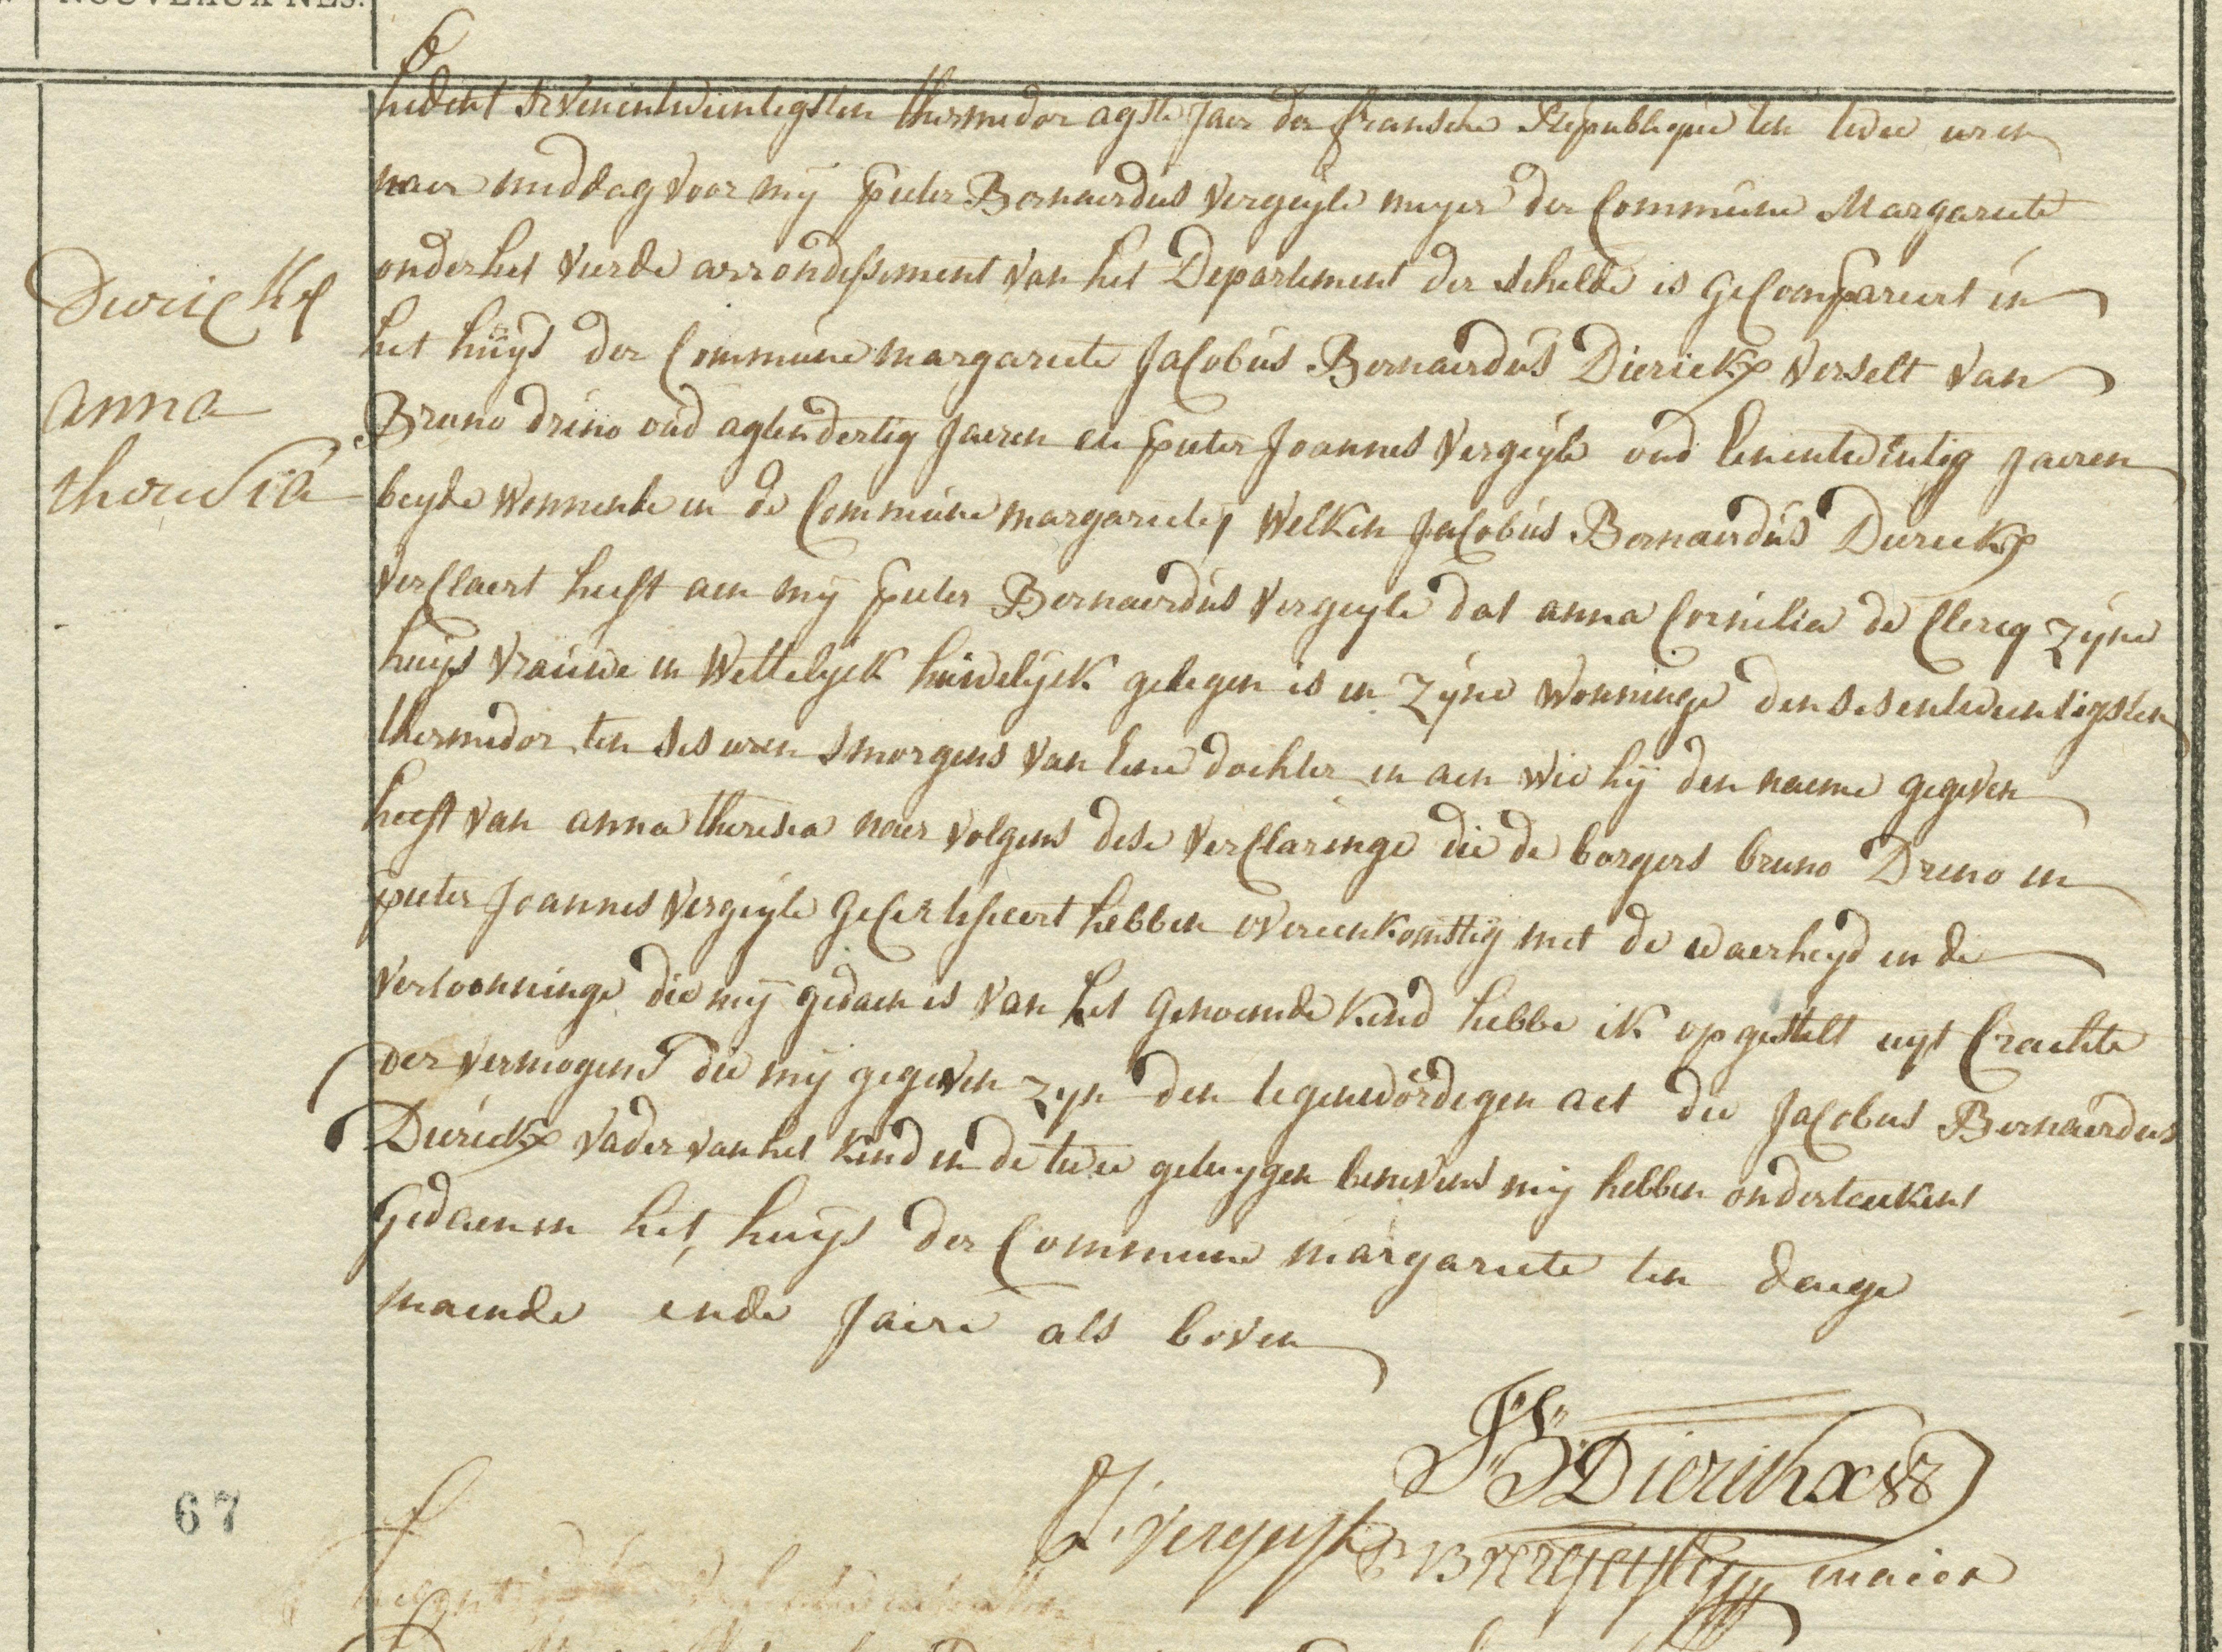 NOUVEAUX NÉS.
hedent sevenentwintigsten thermidor agste Jaer der fransche Republique ten twee uren
naer middag voor mij pieter Bernaerdus Vergeyle meyer der Commune Margariete
onder het vierde arrondissement van het Departement der Schelde is geCompareert in
het huys der Commune margariete JaCobus Bernaerdus Dierickx verselt van
Bruno dreno oud agtendertig Jaeren en pieter Joannes Vergeyle oud Eenentwintig Jaeren
beyde wonnende in de Commune margariete, welken JaCobus Bernaerdus Dierickx
verClaert heeft aen mij pieter Bernaerdus Vergeyle dat anna Cornelia de Clercq zyne
huys vrauwe in wettelyck huwelyck gelegen is in zyne wonninge den sesentwentigsten
thermidor ten ses uren smorgens van Eene dochter en aen wie hij den naeme gegeven
heeft van anna theresia naer volgens dese verClaringe die de borgers bruno Dreno en
pieter Joannes Vergeyle geCertifieert hebben overeenkomstig met de waerheyd en de
vertooninge die mij gedaen is van het genoemde kind hebbe ik opgestelt uyt Crachte
der vermogens die mij gegeven zyn den tegenwordigen act die JaCobus Bernaerdus
Dierickx vader van het kind en de twee getuygen benevens mij hebben onderteekent
Gedaen in het huys der Commune margariete ten daege
maende ende Jaere als boven
Dierickx
anna
theresia
J B Dierickx
J. vergeyle
P B Vergeyle maier
67